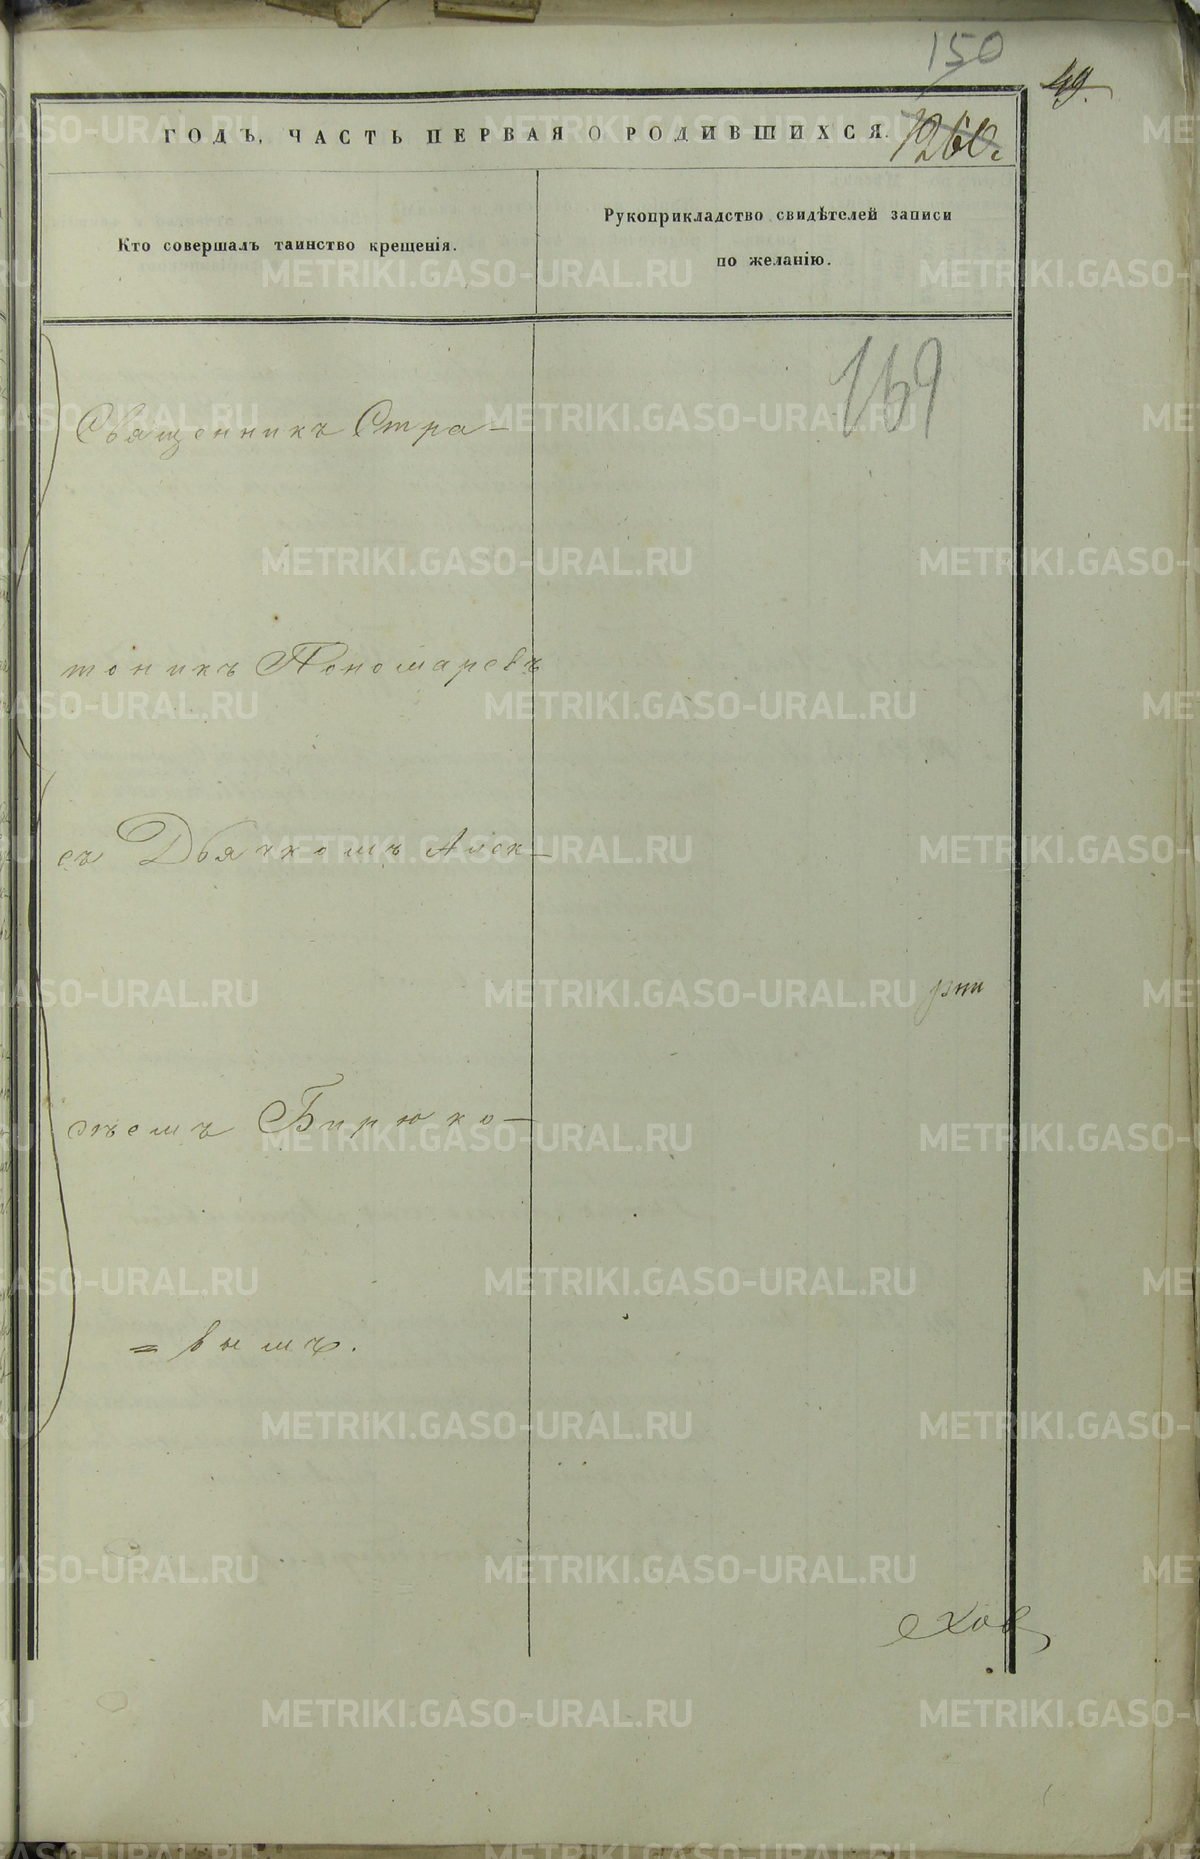 150
49.
ГОДЪ, ЧАСТЬ ПЕРВАЯ О РОДИВШИХСЯ. 1260.
Кто совершалъ таинство крещенія.
Рукоприкладство свидѣтелей записи
по желанію.
169
Священникъ Стра-
тоникъ Пономаревъ
съ Дьячкомъ Алек-
ѣемъ Бирюко-
=вымъ.
METRIKI.GASO-URAL.RU